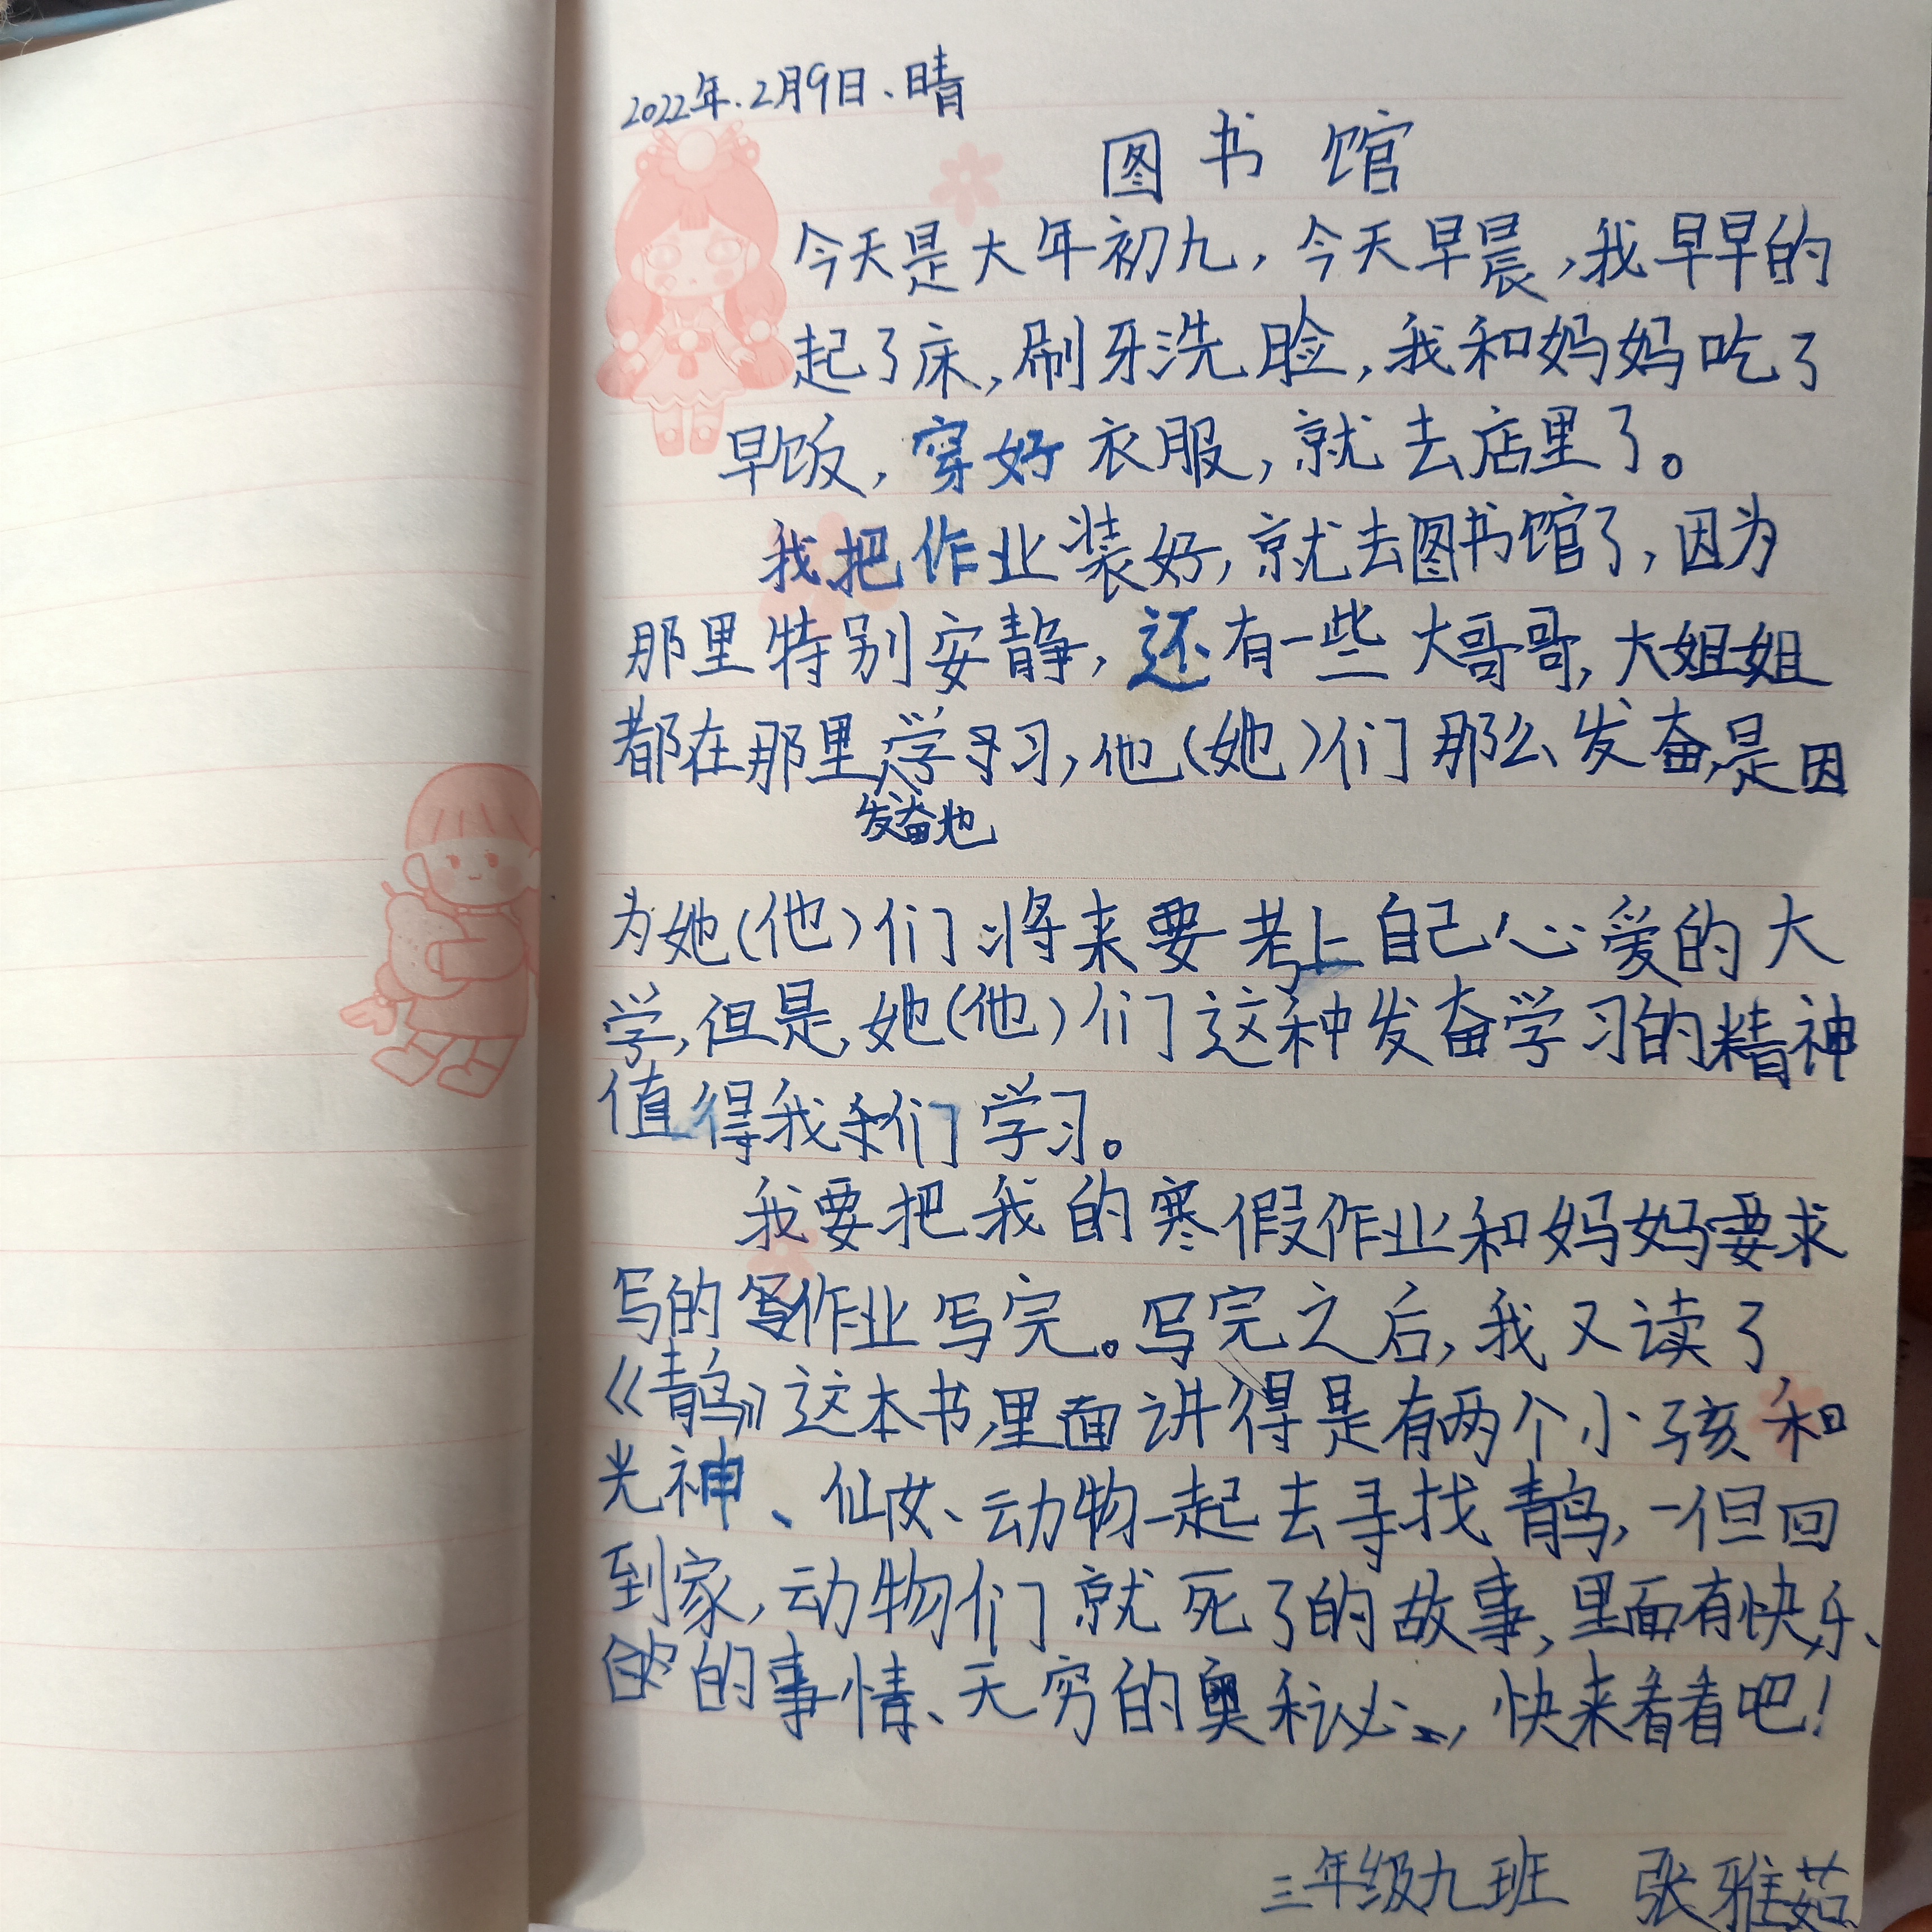 2022年.2月9日、晴
图书馆
今天是大年初九，今天早晨，我早早的
起了床，刷牙洗脸，我和妈妈吃了
早饭，穿好衣服，就去店里了。
我把作业装好，就去图书馆了，因为
那里特别安静，还有一些大哥哥，大姐姐
都在那里学习，他（她）们那么发奋，是因
发奋地
为她（他）们将来要考上自己心爱的大
学，但是，她（他）们这种发奋学习的精神
值得我们学习。
我要把我的寒假作业和妈妈要求
写的作业写完。写完之后，我又读了
《青鸟》这本书，里面讲得是有两个小孩和
光神、仙女、动物一起去寻找青鸟，一但回
到家，动物们就死了的故事，里面有快乐、
的事情、无穷的奥秘，快来看看吧！
三年级九班 张雅茹